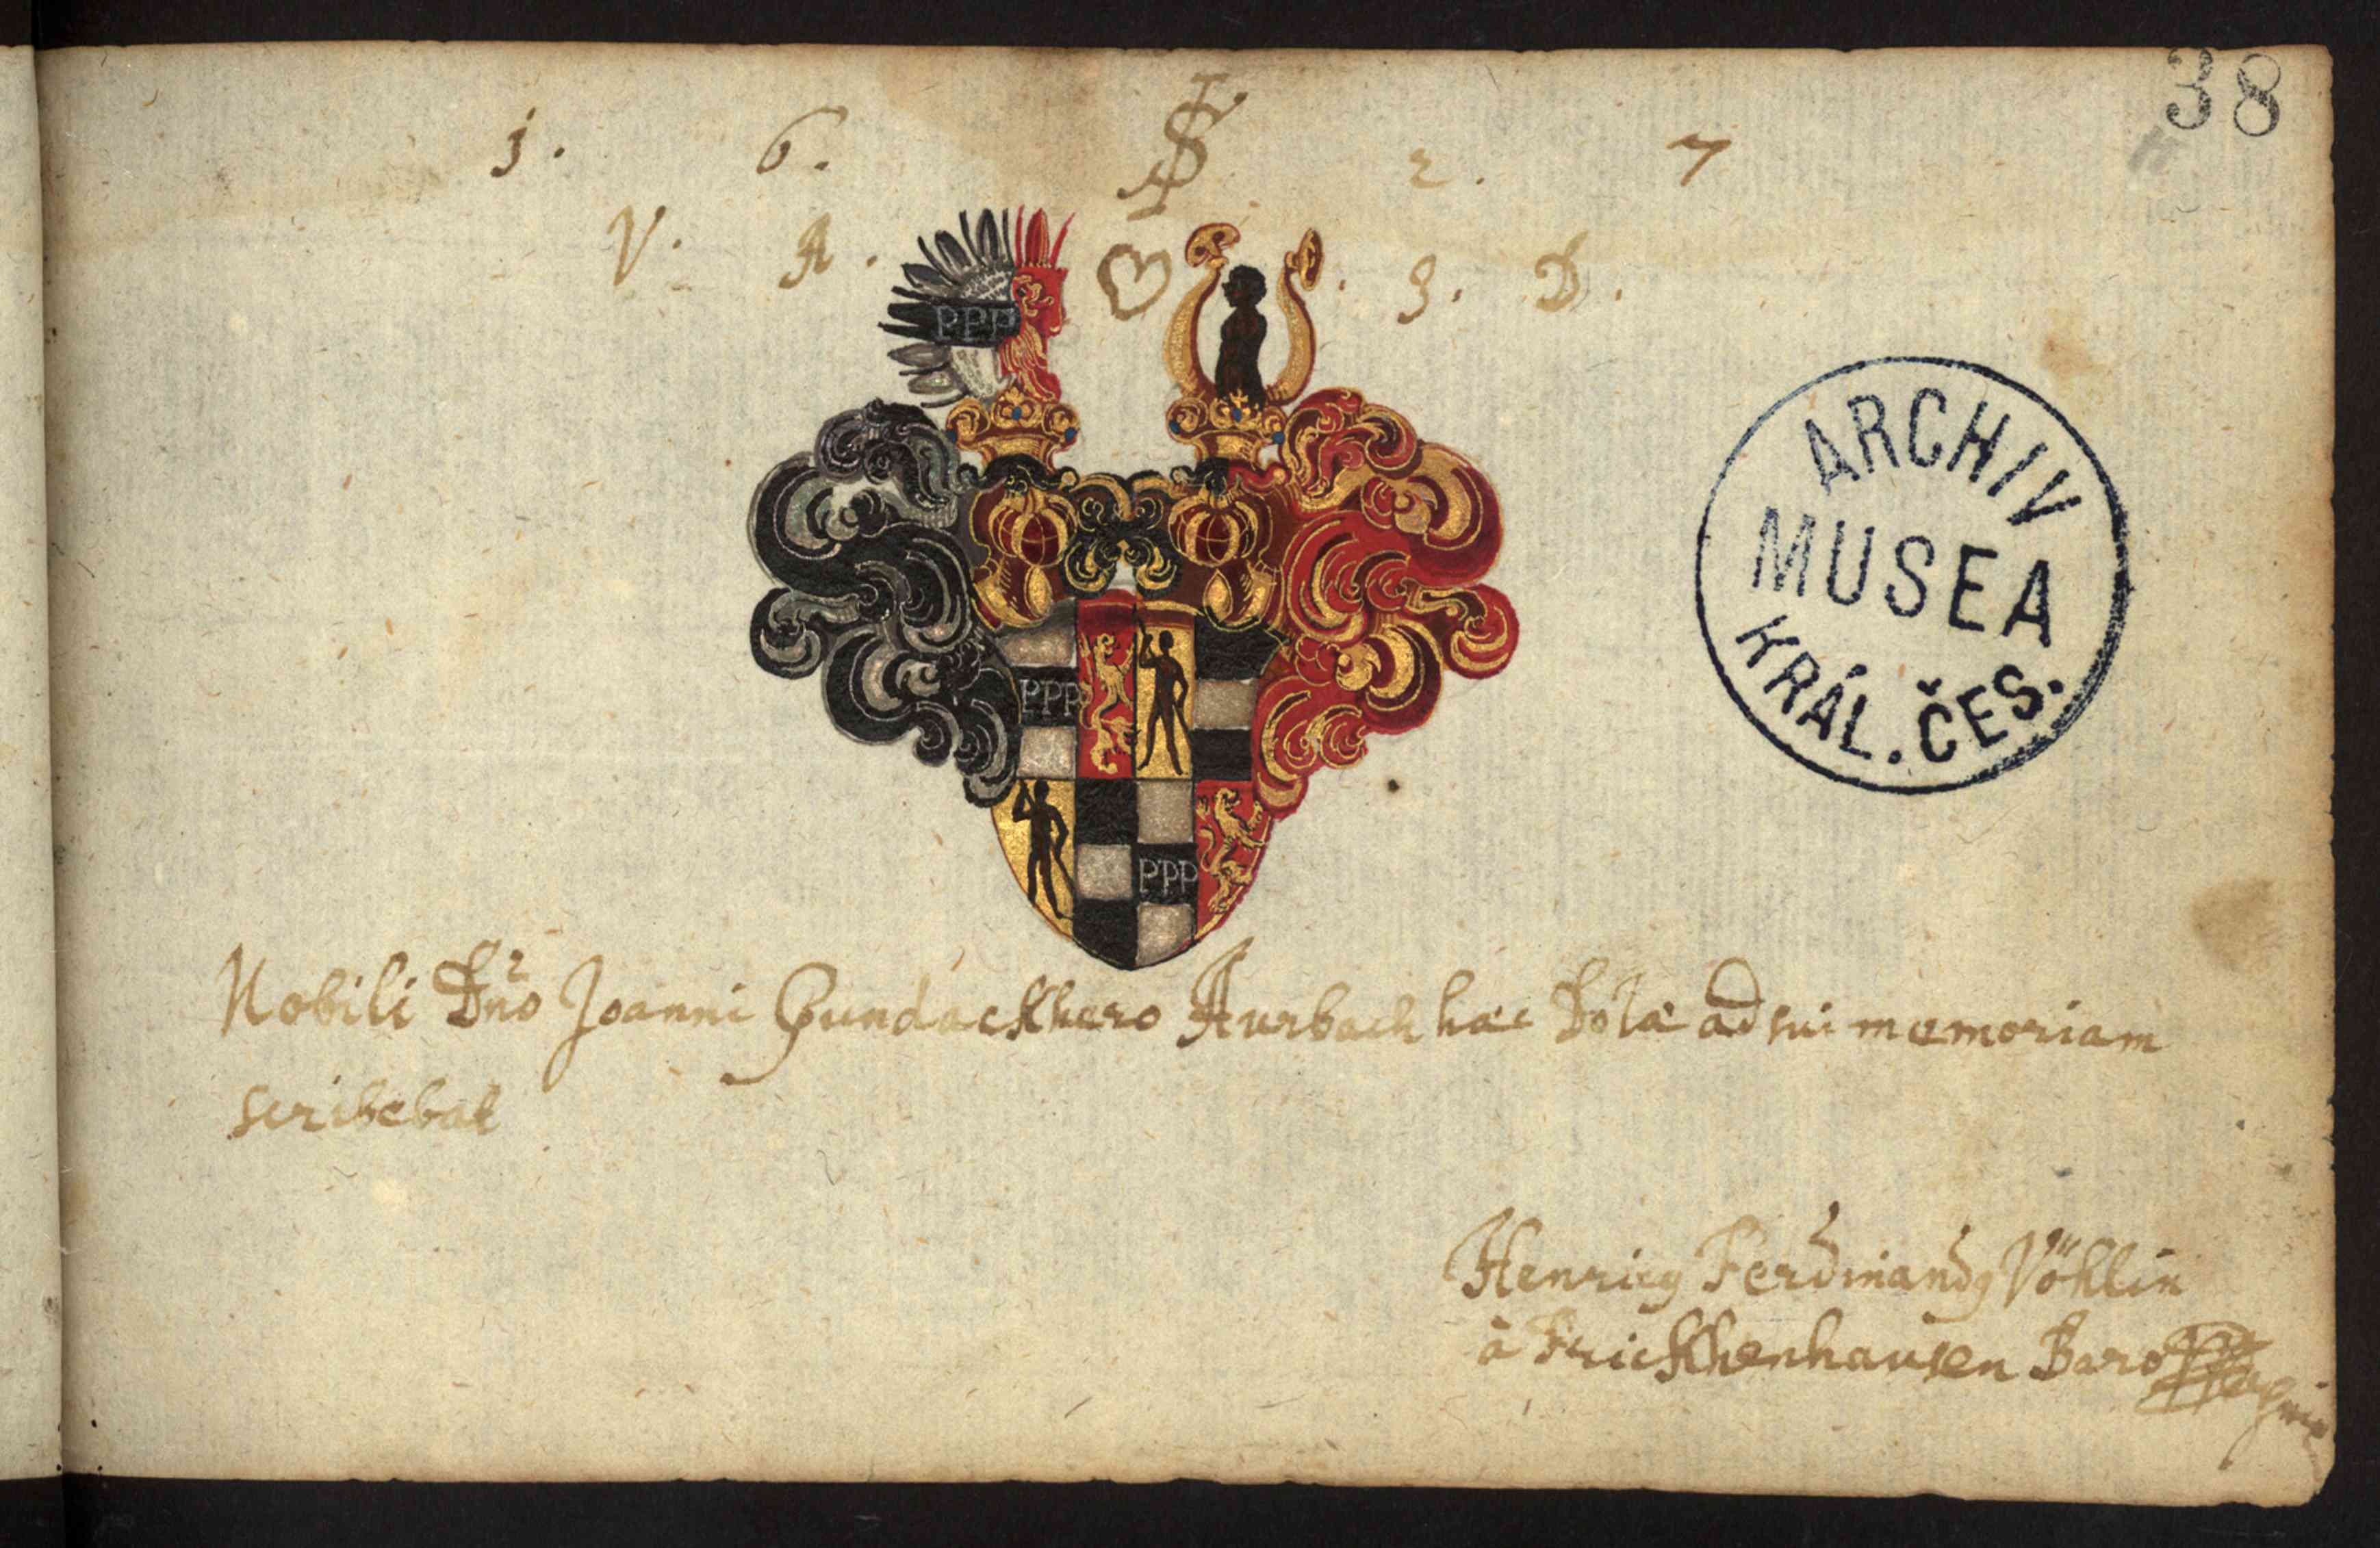 38
1. 6. 2. 7
V. A. . 3. D.
PPP
PPP
PPP
ARCHIV
MUSEA
KRÁL. ČES.
Nobili Dno Joanni Gundackhero Aurbach hac Dola ad sui memoriam
scribebat
Henricq Ferdinandq Vöhlin
à Frickhenhausen Baro